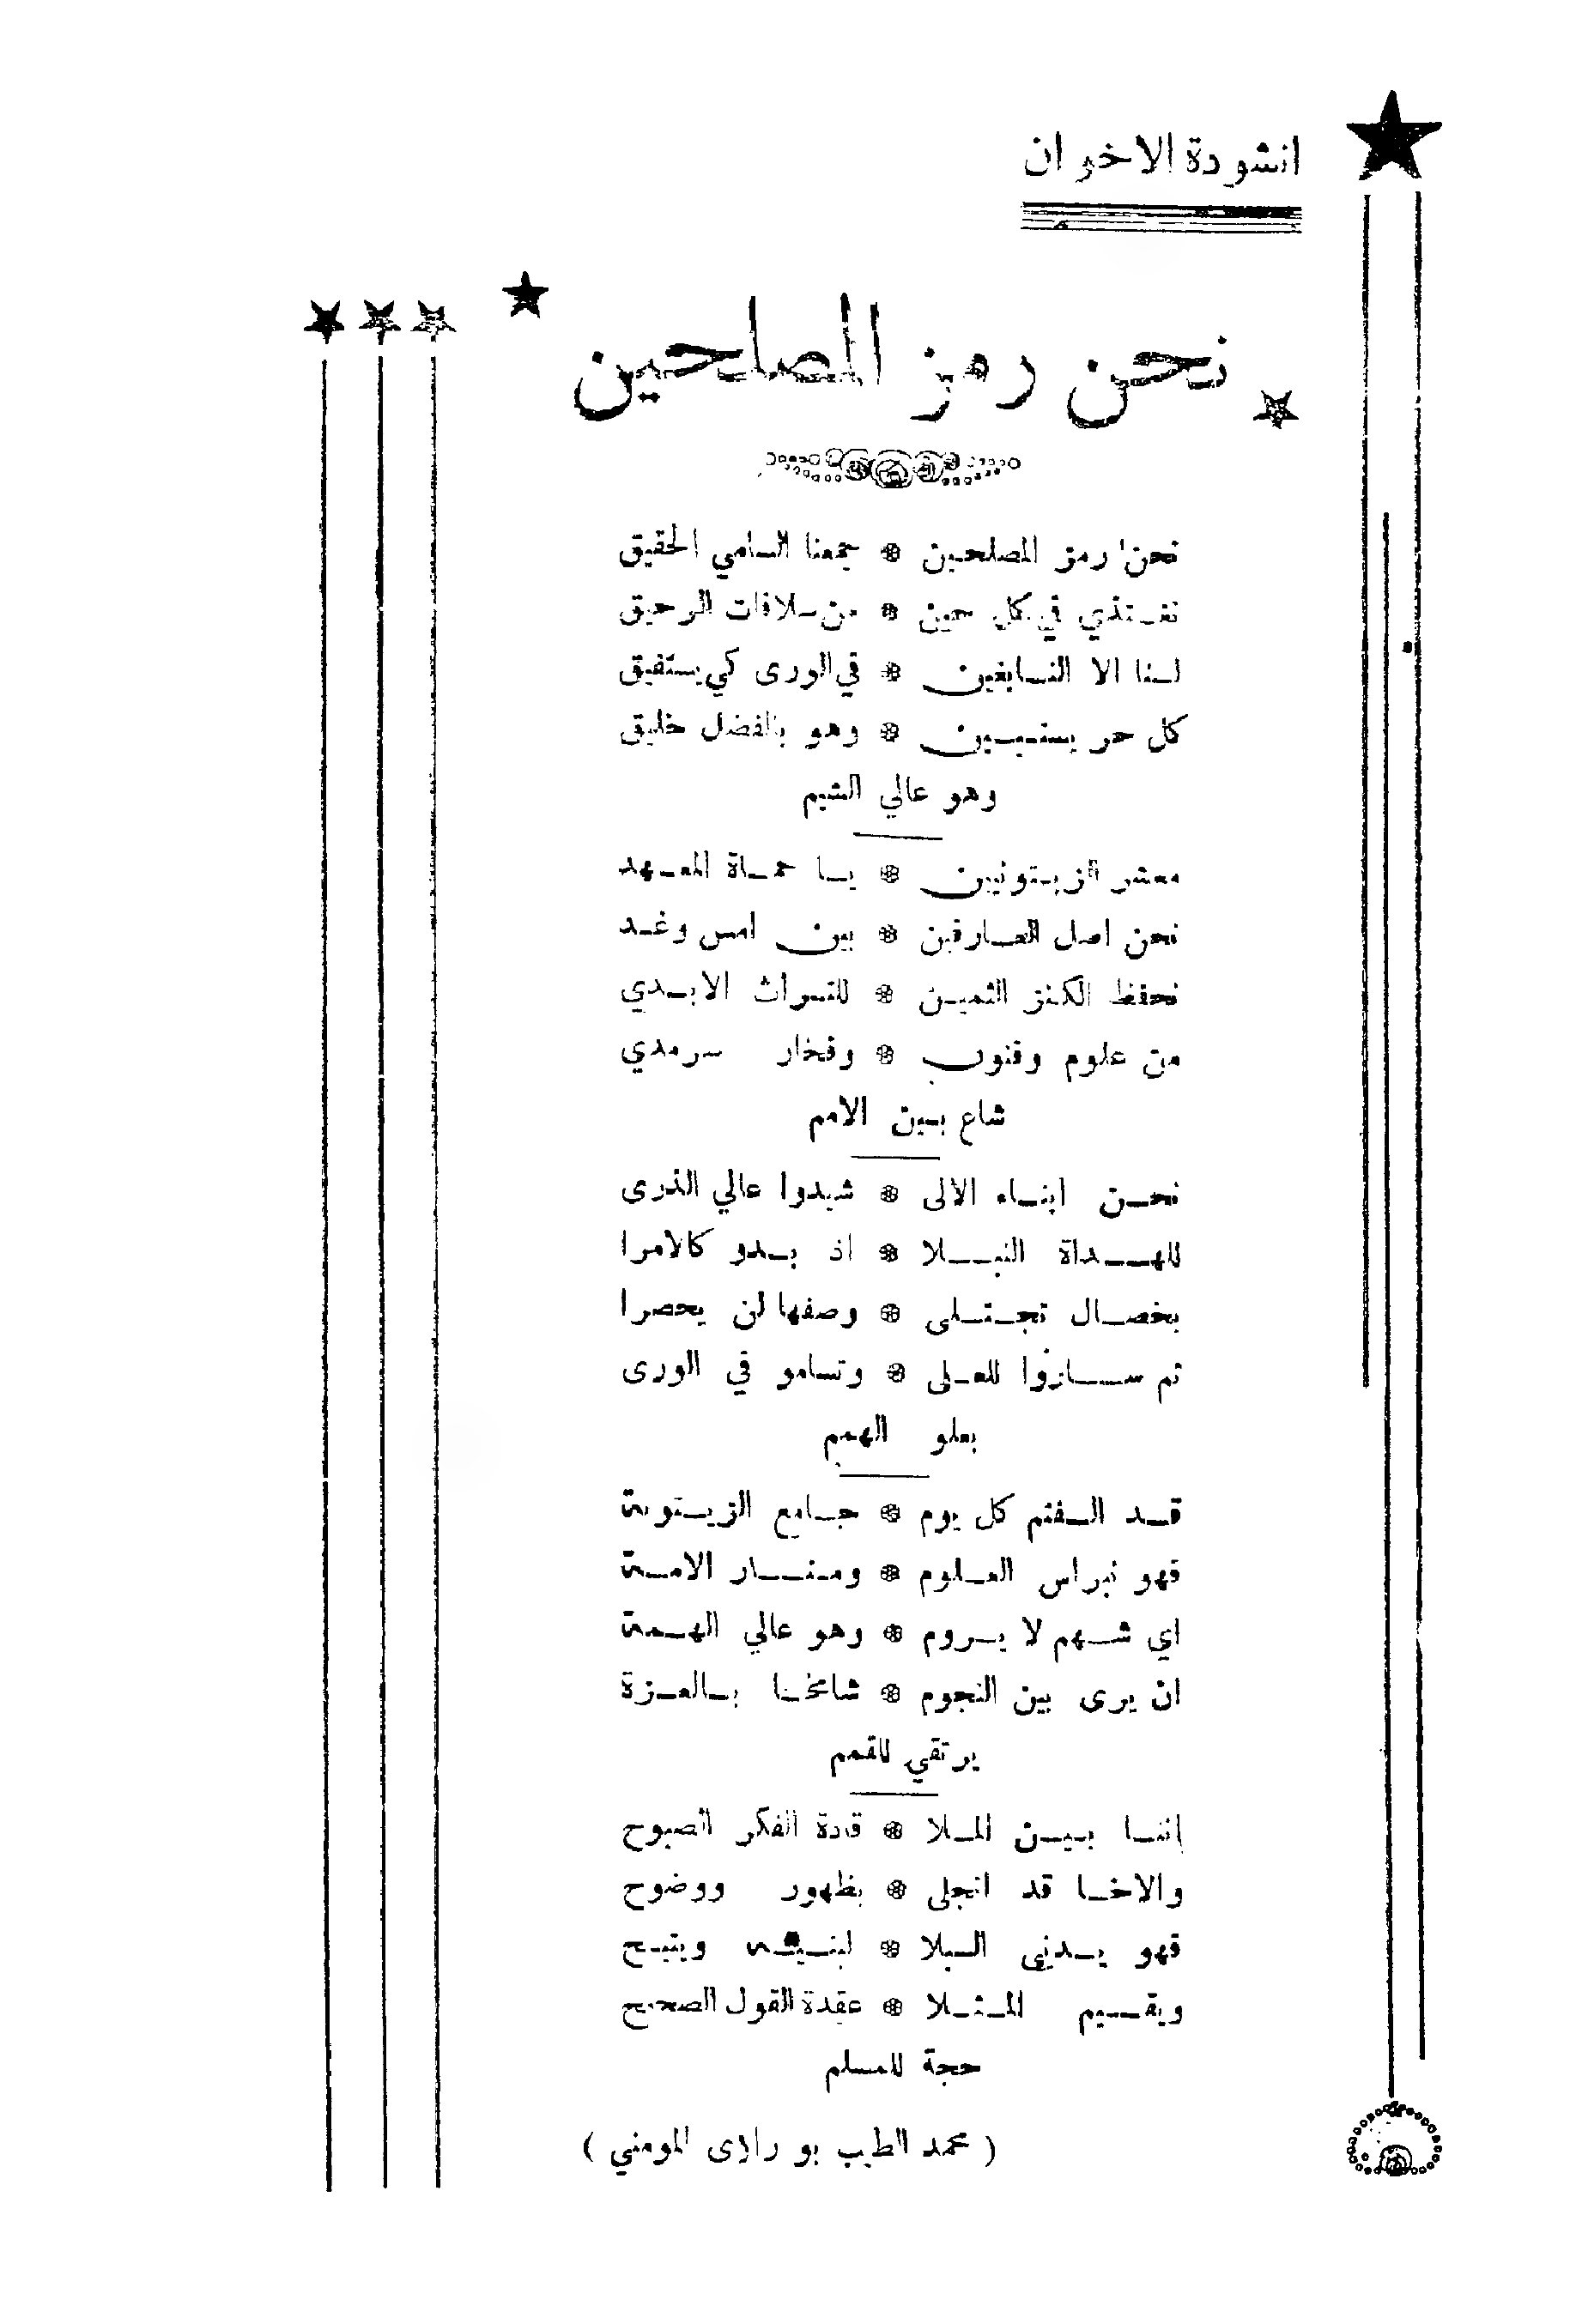 انشودة الاخوان
نحن رمز المصلحين
نحن رمز المصلحين * جمعنا السامي الحقيق
نغتذي في كل حين * من سلافات الرحيق
لسنا الا النابغين * في الورى كي يستفيق
كل حر يستبين * وهو بالفضل خليق
وهو عالي الشيم
معشر الزيتونيين * يا حماة المعهد
نحن اصل العارفين * بين امس وغد
نحفظ الكنز الثمين * للتراث الابدي
من علوم وفنون * وفخار سرمدي
شاع بين الامم
نحن ابناء الالى * شيدوا عالي الذرى
للهداة النبلا * اذ بدو كالامرا
بخصال تجتلى * وصفها لن يحصرا
ثم ساروا للعلى * وتسامو في الورى
بعلو الهمم
قد الفتم كل يوم * جامع الزيتونة
فهو نبراس العلوم * ومنار الامة
اي شهم لا يروم * وهو عالي الهمة
ان يرى بين النجوم * شامخا بالعزة
يرتقي للقمم
إننا بين الملا * قادة الفكر الصبوح
والاخا قد انجلى * بظهور ووضوح
فهو يدني البلا * لبنيه ويتيح
ويقيم المثلا * عقدة القول الصحيح
حجة للمسلم
( محمد الطيب بو المومني )